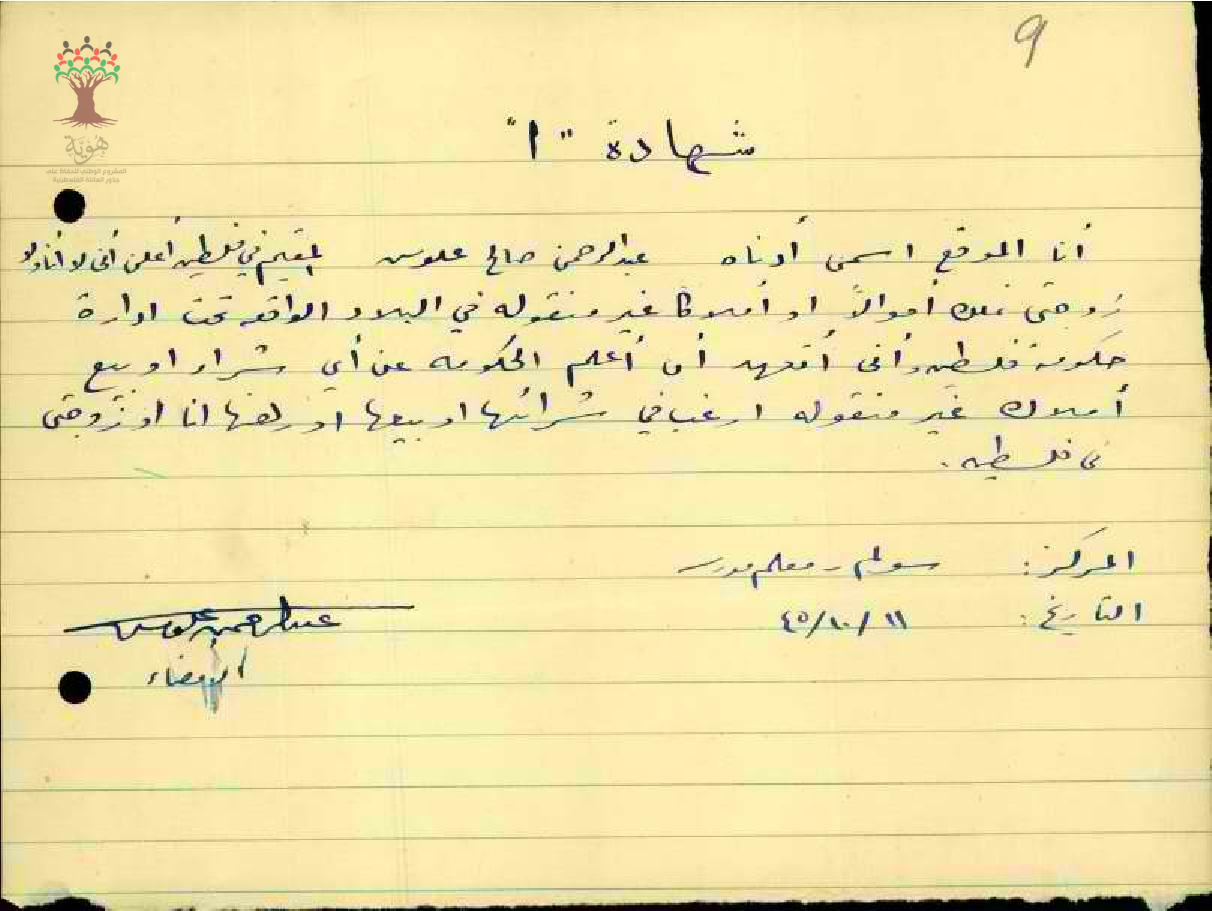 9
هوية
المشروع الوطني للحفاظ على
جذور العائلة الفلسطينية
شهادة "ا"
أنا الموقع اسمي أدناه عبدالرحمن صالح علوس المقيم في فلسطين أعلن أنى لا أنا ولا
زوجتى نملك أموالاً او أملاكا غير منقوله في البلاد الواقعه تحت ادارة
حكومة فلسطين وأنى أتعهد أن أعلم الحكومه عن أي شراء او بيع
أملاك غير منقوله ارغب في شرائها او بيعها او رهنها انا او زوجتى
فى فلسطين.
المركز: معلم مدرسه
التاريخ: ١١/١٠/٤٥
عبدالرحمن علوس
الإمضاء